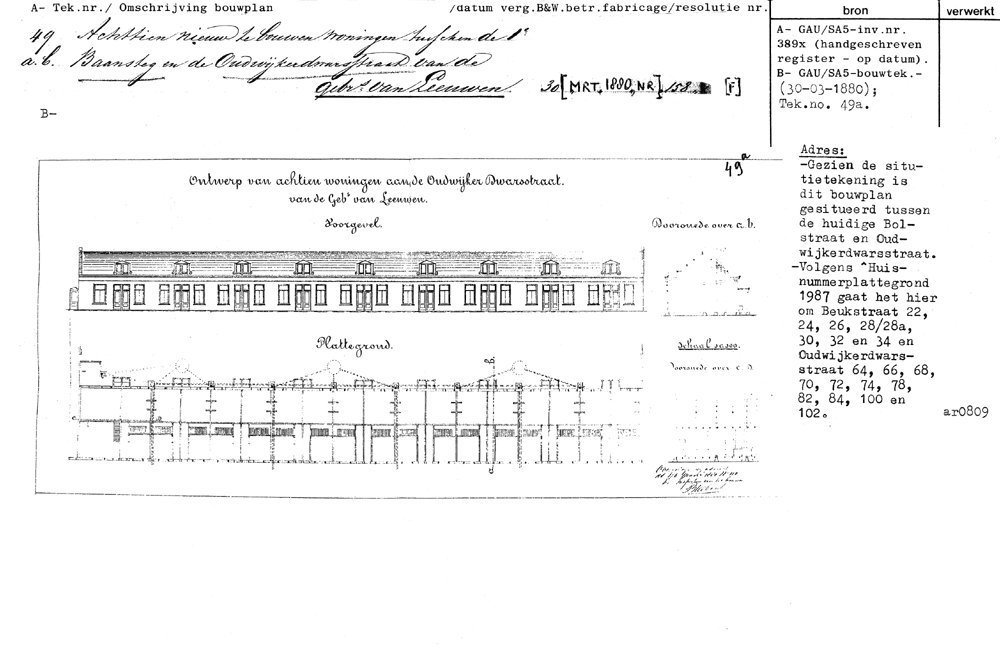 A- Tek.nr./ Omschrijving bouwplan
/datum verg.B&W.betr.fabricage/resolutie nr.
bron
verwerkt
49 Achttien nieuw te bouwen woningen tusschen de 1e
a.b. Baansteg en de Oudwijkerdwarsstraat van de
Gebrs. van Leeuwen.
30 [MRT. 1880, NR] 158 [F]
B-
A- GAU/SA5-inv.nr.
389x (handgeschreven
register - op datum).
B- GAU/SA5-bouwtek.-
(30-03-1880);
Tek.no. 49a.
49a
Ontwerp van achtien woningen aan de Oudwijker Dwarsstraat.
van de Gebs van Leeuwen.
Voorgevel.
Doorsnede over a.b.
Plattegrond.
Schaal
Doorsnede over c.d.
Adres:
-Gezien de situ-
tietekening is
dit bouwplan
gesitueerd tussen
de huidige Bol-
straat en Oud-
wijkerdwarsstraat.
-Volgens ^Huis-
nummerplattegrond
1987 gaat het hier
om Beukstraat 22,
24, 26, 28/28a,
30, 32 en 34 en
Oudwijkerdwars-
straat 64, 66, 68,
70, 72, 74, 78,
82, 84, 100 en
102.
ar0809